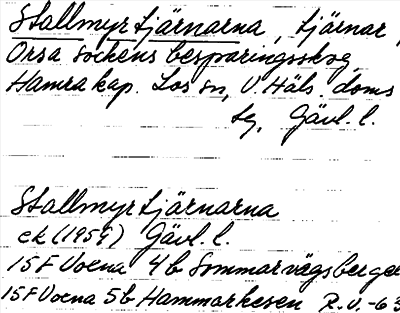 Stallmyrtjärnarna, tjärnar,
Orsa sockens besparingsskog,
Hamra kap. Los sn, V. Häls. doms
sg, Gävl. l.
Stallmyrtjärnarna
ek (1959) Gävl. l.
15F Voxna 4b Sommarvägsberget
15F Voxna 5b Hammarkesen R.V.-63